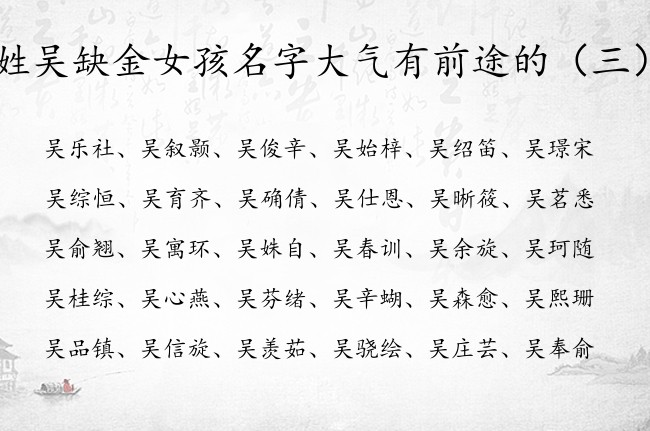 姓吴缺金女孩名字大气有前途的（三）
吴乐社、吴叙颢、吴俊辛、吴始梓、吴绍笛、吴璟宋
吴综恒、吴育齐、吴确倩、吴仕恩、吴晰筱、吴茗悉
吴俞翘、吴寓环、吴姝自、吴春训、吴余旋、吴珂随
吴桂综、吴心燕、吴芬绪、吴辛蝴、吴森愈、吴熙珊
吴品镇、吴信旋、吴羡茹、吴骁绘、吴庄芸、吴奉俞